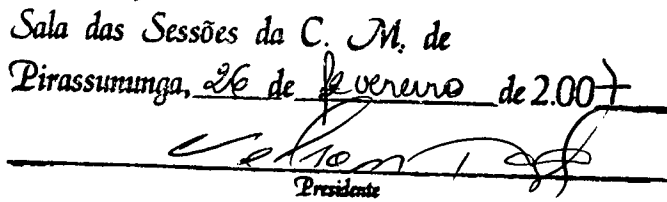 Sala das Sessões da C. M. de
Pirassununga, 26 de fevereiro de 2.007
Presidente